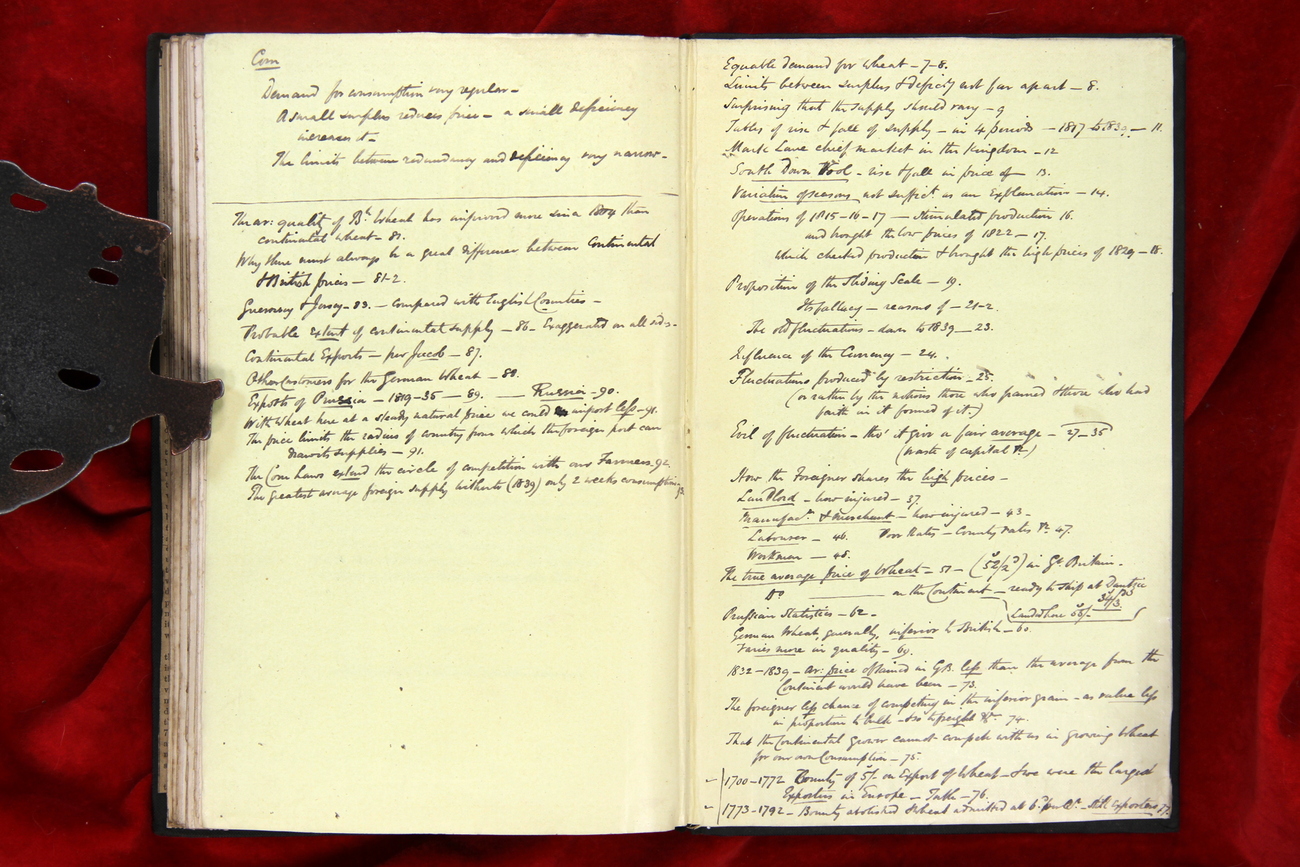 Corn
Demand for consumption very regular –
A small surplus reduces price – a small deficiency
increases it –
The limits between redundancy and deficiency very narrow –
The av: quality of Bh. Wheat has improved more since 1804 than
continental wheat – 81.
Why there must always be a great difference between Continental
& British prices – 81-2.
Guernsey & Jersey – 83. – compared with English Counties –
Probable extent of continental supply – 86 – Exaggerated on all sides –
Continental Exports – per Jacob – 87.
Other Customers for the German Wheat – 88.
Exports of Prussia – 1819-35 – 89. — Russia – 90.
With Wheat here at a steady natural price we could import less – 91.
The price limits the radius of country from which the foreign port can
draw its supplies – 91.
The Corn Laws extend the circle of competition with our Farmers – 92.
The greatest average foreign supply hitherto (1839) only 2 weeks consumption 93.
Equable demand for wheat – 7-8.
Limits between surplus & deficy. not far apart – 8.
Surprising that the supply should vary – 9
Tables of rise & fall of supply – in 4 periods – 1817 to 1839 – 11.
Mark Lane chief market in the Kingdom – 12
South Down Wool – rise & fall in price of – 13.
Variation of seasons not suffict. as an Explanation – 14.
Operations of 1815-16-17 – stimulated production 16.
and brought the low prices of 1822 – 17.
which checked production & brought the high prices of 1829 – 18.
Proposition of the Sliding Scale – 19.
Its fallacy – reasons of – 21-2.
The old fluctuations – down to 1839 – 23.
Influence of the Currency – 24.
Fluctuations produced by restriction – 25.
(or rather by the notions those who framed & those who had
faith in it formed of it.)
Evil of fluctuation – tho' it give a fair average – 27-35
(waste of capital &c.)
How the Foreigner shares the high prices –
Landlord – how injured – 37
Manufacr. & merchant – how injured – 43 –
Labourer – 46. Poor Rates – County rates &c. 47.
Workman – 48.
The true average price of Wheat – 51 – (52/2d) in Gt. Britain –
Do. ——— on the Continent – ready to ship at Dantzic
34/3
Prussian Statistics – 62 –
German Wheat, generally, inferior to British – 60.
Varies more in quality – 69.
1832-1839 – av: price obtained in G.B. less than the average from the
Continent would have been – 73.
The foreigner less chance of competing in the inferior grain – as value less
in proportion to bulk – & so to freight &c. 74.
That the Continental Grower cannot compete with us in growing Wheat
for our own Consumption – 75.
1700-1772 Bounty of 5/- on Export of Wheat – & we were the largest
Exporters in Europe – Table – 76.
1773-1792 – Bounty abolished & wheat admitted at 6d. pr. Qr. – still exporters 77.